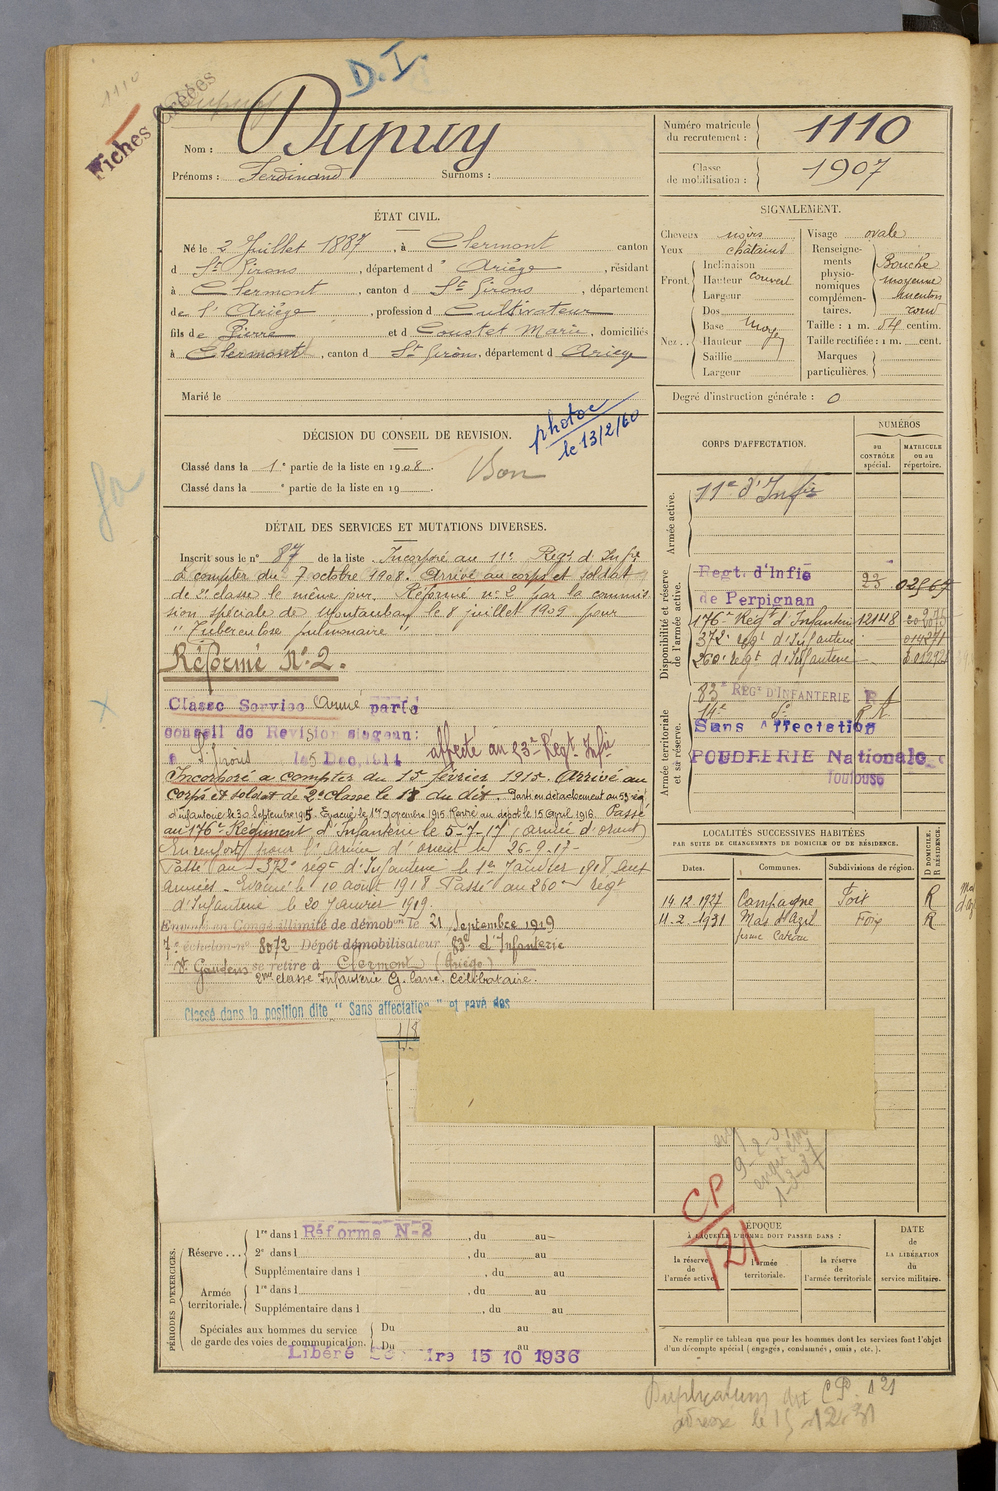 1110
Fiches Créées
D.I.
Nom : Dupuy
Prénoms : Ferdinand Surnoms :
Numéro matricule du recrutement : 1110
Classe de mobilisation : 1907
ÉTAT CIVIL.
Né le 2 Juillet 1887, à Clermont canton
d St Girons, département d' Ariège, résidant
à Clermont, canton d St Girons, département
de l'Ariège, profession d Cultivateur
fils de Pierre et d Coustet Marie, domiciliés
à Clermont, canton d St Girons, département d Ariège
Marié le
SIGNALEMENT.
Cheveux noirs
Yeux châtains
Front. Inclinaison
Hauteur couvert
Largeur
Nez.. Dos
Base moyen
Hauteur
Saillie
Largeur
Visage ovale
Renseignements physionomiques complémentaires. Bouche moyenne menton rond
Taille : 1 m. 54 centim.
Taille rectifiée : 1 m. cent.
Marques particulières.
Degré d'instruction générale : 0
DÉCISION DU CONSEIL DE REVISION.
photoc le 13/2/60
Classé dans la 1e partie de la liste en 1908.
Bon
Classé dans la e partie de la liste en 19
DÉTAIL DES SERVICES ET MUTATIONS DIVERSES.
Inscrit sous le n° 87 de la liste. Incorporé au 11e Régt d'Infie
à compter du 7 octobre 1908. Arrivé au corps et soldat
de 2e classe le même jour. Réformé n° 2 par la commis
sion spéciale de Montauban le 8 juillet 1909 pour
" Tuberculose pulmonaire "
Réformé N° 2.
Classe Service Armé par le
conseil de Revision siegeant
à St Girons le 5 Dec, 1914 affecté au 23e Régt Infie
Incorporé à compter du 15 février 1915. Arrivé au
corps et soldat de 2e classe le 18 du dit. Parti en détachement au 53 régt
d'infanterie le 30 Septembre 1915. Evacué le 17 Novembre 1915 Rentré au dépôt le 15 avril 1916. Passé
au 176e Régiment d'Infanterie le 5-7-17 (armée d'orient)
En renfort pour l'armée d'orient le 26-9-17-
Passé au 372e régt d'Infanterie le 1er Janvier 1918 aux
armées. Evacué le 10 août 1918 Passé au 260e régt
d'Infanterie le 20 Janvier 1919.
Envoyé en Congé illimité de démobon le 21 Septembre 1919
7e échelon n° 8072 Dépôt démobilisateur 83e d'Infanterie
St Gaudens se retire d Clermont (Ariège)
Classé dans la position dite " Sans affectation " et rayé des
CORPS D'AFFECTATION.
NUMÉROS
au CONTRÔLE spécial.
MATRICULE ou au répertoire.
Armée active.
11e d'Infie
Disponibilité et réserve de l'armée active.
Regt. d'Infie de Perpignan 23
176e Régt d'Infanterie 12118
372e régt d'Infanterie 014271
260e régt d'Infanterie
Armée territoriale et sa réserve.
83e RÉGt D'INFANTERIE
14e do
Sans Affectation
POUDRERIE Nationale
Toulouse
LOCALITÉS SUCCESSIVES HABITÉES
PAR SUITE DE CHANGEMENTS DE DOMICILE OU DE RÉSIDENCE.
Dates. Communes. Subdivisions de région. D DOMICILE. R RÉSIDENCE.
14.12.1927 Campagne Foix R
11-2-1931 Mas d'Azil Foix R
CP
121
PÉRIODES D'EXERCICES.
Réserve... 1re dans l Réformé N-2, du au
2e dans l, du au
Supplémentaire dans l, du au
Armée territoriale. 1re dans l, du au
Supplémentaire dans l, du au
Spéciales aux hommes du service de garde des voies de communication. Du au
Du au
Libéré 15 10 1936
ÉPOQUE
À LAQUELLE L'HOMME DOIT PASSER DANS :
la réserve de l'armée active
l'armée territoriale.
la réserve de l'armée territoriale
DATE DE LA LIBÉRATION du service militaire.
Ne remplir ce tableau que pour les hommes dont les services font l'objet
d'un décompte spécial (engagés, condamnés, omis, etc.).